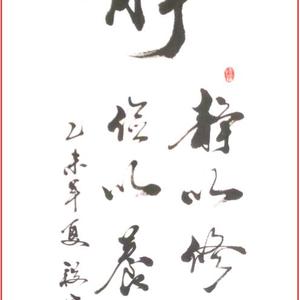 静以修
俭以養
乙未年夏